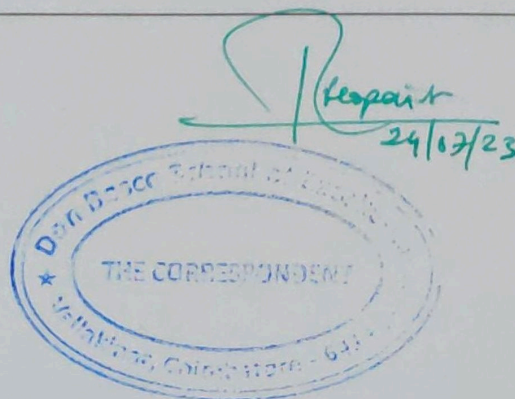 24/07/23
Don Bosco School of Excellence
THE CORRESPONDENT
Coimbatore - 641